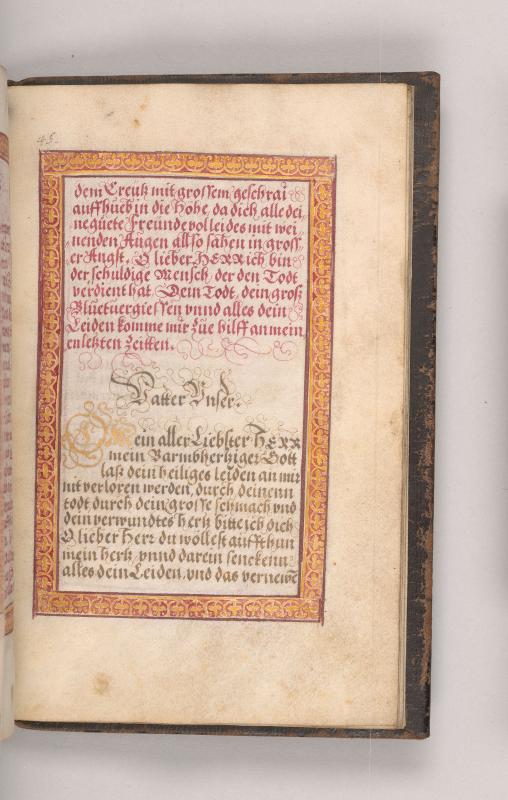 45.
dem Creutz mit grossem geschrai
auffhueb in die Höhe, da dich alle dei
negüete Freunde vol leides mit wei
nenden Augen allso sahen in gross
er Angst, O lieber HERR ich bin
der schuldige Mensch, der den Todt
verdient hat. Dein Todt, dein groß
Bluetuergiessen vnnd alles dein
Leiden komme mir züe hilff an mein
en letzten Zeitten.
Vatter Vnser.
O Mein aller Liebster HERR
mein Barmbhertziger Gott
laß dein heiliges leiden an mir
nit verloren werden, durch deinenn
todt durch dein grosse schmach vnd
dein verwundtes hertz bitte ich dich
O lieber Herr du wöllest auffthun
mein hertz, vnnd darein senckenn
alles dein Leiden, vnd das vernewe